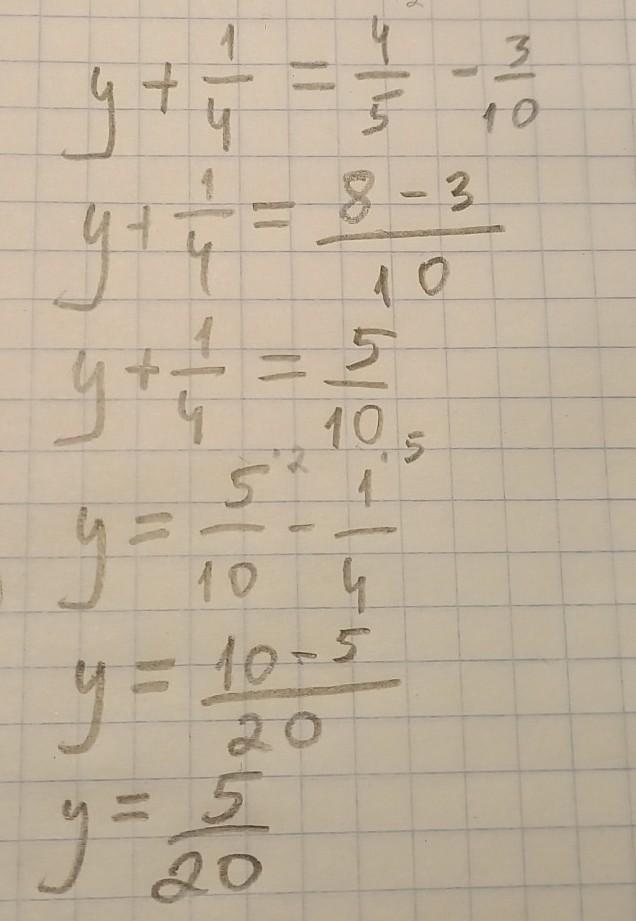 y + 1/4 = 4/5 - 3/10
y + 1/4 = (8 - 3)/10
y + 1/4 = 5/10
y = 5/10 ·2 - 1/4 ·5
y = (10 - 5)/20
y = 5/20